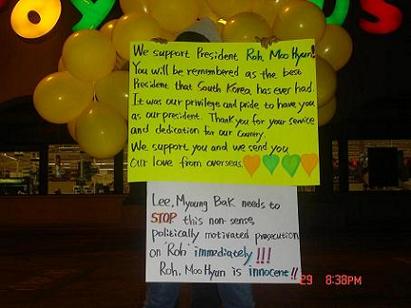 We support President Roh, Moo Hyun!
You will be remembered as the best
President that South Korea has ever had.
It was our privilege and pride to have you
as our president. Thank you for your service
and dedication for our Country.
We support you and we send you
our love from overseas.
Lee, Myoung Bak needs to
STOP this non-sense,
politically motivated prosecution
on 'Roh' immediately!!!
Roh, Moo Hyun is innocent!!
29 8:38PM